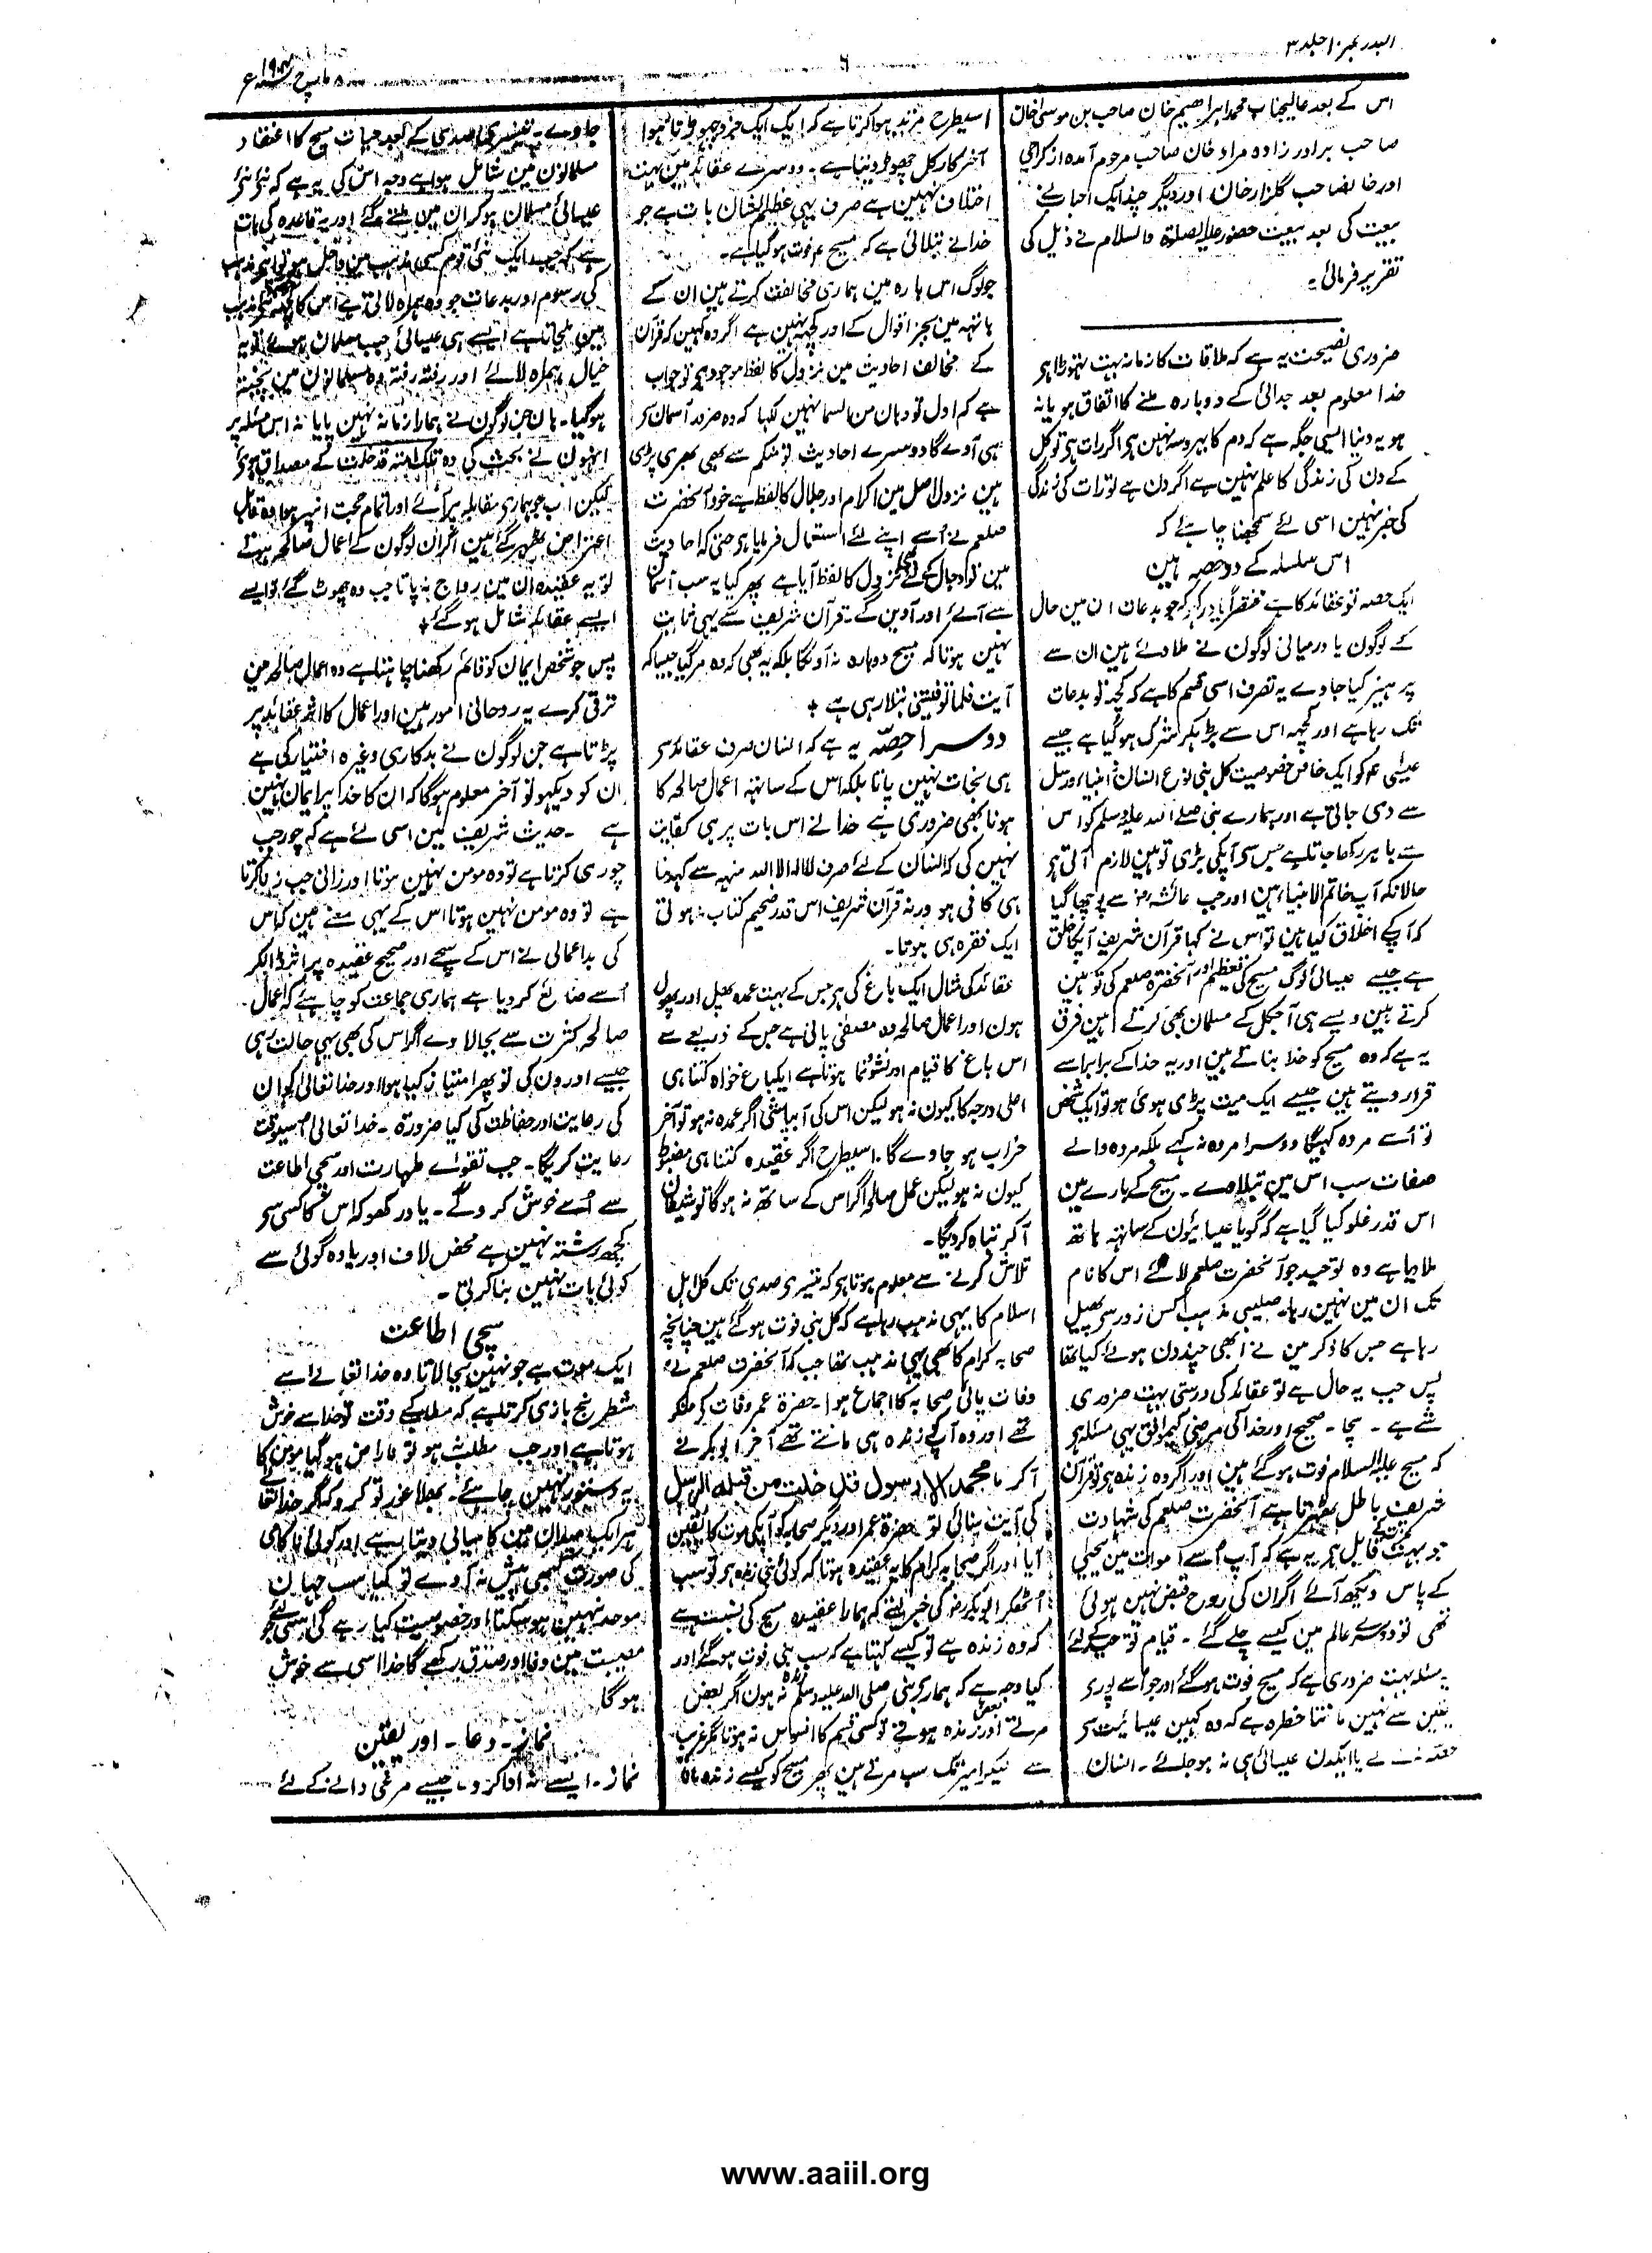 البدر نمبر ۱۰ جلد ۳
۸ مارچ ۱۹۰۴ء
اس کے بعد عالیجناب محمد ابراھیم خان صاحب بن موسیٰ خان
صاحب برادر زادہ مراد خان صاحب مرحوم آمدہ از کراچی
اور خانصاحب گلزار خان اور دیگر چند ایک احباب نے
بیعت کی بعد بیعت حضور علیہ الصلوۃ والسلام نے ذیل کی
تقریر فرمائی۔
ضروری نصیحت یہ ہے کہ ملاقات کا زمانہ بہت تھوڑا ہر
خدا معلوم بعد جدائی کے دوبارہ ملنے کا اتفاق ہو یا نہ
ہو یہ دنیا ایسی جگہ ہے کہ دم کا بھروسہ نہین ہر اگر رات ہر تو کل
کے دن کی زندگی کا علم نہین ہے اگر دن ہے تو رات کی زندگی
کی خبر نہین اسی لئے سمجھنا چاہئے کہ
اس سلسلہ کے دو حصہ ہین
ایک حصہ تو عقائد کا ہے مختصراً یاد رکہو کہ جو بدعات ان مین حال
کے لوگون یا درمیانی لوگون نے ملا دئے ہین ان سے
پرہیز کیا جاوے یہ تصرف اسی قسم کا ہے کہ کچہ تو بدعات
تک رہا ہے اور کچہہ اس سے بڑہکر شرک ہو گیا ہے جیسے
عیسٰی ؑ کو ایک خاص خصوصیت کل بنی نوع انسان انبیاء و رسل
سے دی جاتی ہے اور ہمارے نبی صلے اللہ علیہ وسلم کو اس
سے باہر رکہا جاتا ہے جس سے آپکی بڑی توہین لازم آتی ہر
حالانکہ آپ خاتم الانبیاء ہین اور جب عائشہؓ سے پوچہا گیا
کہ آپکے اخلاق کیا ہین تو اس نے کہا قرآن شریف آپکا خلق
ہے جیسے عیسائی لوگ مسیح کی تعظیم اور آنحضرۃ صلعم کی توہین
کرتے ہین ویسے ہی آجکل کے مسلمان بھی کرتے ہین فرق
یہ ہے کہ وہ مسیح کو خدا بناتے ہین اور یہ خدا کے برابر اسے
قرار دیتے ہین جیسے ایک میت پڑی ہوئی ہو تو ایک شخص
تو اُسے مردہ کہیگا دوسرا مردہ نہ کہے بلکہ مردہ والے
صفات سب اس مین بتلاوے۔ مسیح کے بارے مین
اس قدر غلو کیا گیا ہے کہ گویا عیسائیون کے ساتہہ ہاتھ
ملا دیا ہے وہ توحید جو آنحضرت صلعم لائے اس کا نام
تک ان مین نہین رہا۔ صلیبی مذہب کس زور سے پھیل
رہا ہے جس کا ذکر مین نے ابھی چند دن ہوئے کیا تھا
پس جب یہ حال ہے تو عقائد کی درستی بہت ضروری
شے ہے۔ سچا۔ صحیح اور خدا کی مرضی کیموافق یہی مسئلہ ہر
کہ مسیح علیہ السلام فوت ہو گئے ہین اور اگر وہ زندہ ہر تو قرآن
شریف باطل ٹھیرتا ہے آنحضرت صلعم کی شہادت
جو بہت قابل ہر یہ ہے کہ آپ اُسے اموات مین یحیٰی
کے پاس دیکھ آئے اگر ان کی روح قبض نہین ہوئی
تھی تو دوسرے عالم مین کیسے چلے گئے۔ قیام توحید کے لئے
یہ مسئلہ بہت ضروری ہے کہ مسیح فوت ہو گئے اور جو اسے پوری
یقین سے نہین مانتا خطرہ ہے کہ وہ کہین عیسائیت سے
حصہ نہ لے یا ایکدن عیسائی ہی نہ ہو جائے۔ انسان
اسیطرح مرتد ہوا کرتا ہے کہ ایک ایک جزو چھوڑتا ہوا
آخر کار کل چھوڑ دیتا ہے۔ دوسرے عقائد مین بہت
اختلاف نہین ہے صرف یہی عظیم الشان بات ہے جو
خدا نے بتلائی ہے کہ مسیح ؑ فوت ہو گیا ہے۔
جو لوگ اس بارہ مین ہماری مخالفت کرتے ہین ان کے
ہاتہہ مین بجز اقوال کے اور کچہہ نہین ہے اگر وہ کہین کہ قرآن
کے مخالف احادیث مین نزول کا لفظ موجود ہر تو جواب
ہے کہ اول تو وہان من السما نہین لکہا کہ وہ ضرور آسمان سے
ہی آوے گا دوسرے احادیث تو ظن سے بھی بھری پڑی
ہین نزول اصل مین اکرام اور جلال کا لفظ ہے خود آنحضرت
صلعم نے اُسے اپنے لئے استعمال فرمایا ہر حتی کہ احادیث
مین تو دجال کے لئے بھی نزول کا لفظ آیا ہے پھر کیا یہ سب آسمان
سے آئے اور آوین گے۔ قرآن شریف سے یہی ثابت
نہین ہوتا کہ مسیح دوبارہ نہ آویگا بلکہ یہ بھی کہ وہ مر گیا جیسا کہ
آیت فلما توفیتنی بتلا رہی ہے ۔
دوسرا حصّہ یہ ہے کہ انسان صرف عقائد سے
ہی نجات نہین پاتا بلکہ اس کے ساتہہ اعمال صالحہ کا
ہونا بھی ضروری ہے خدا نے اس بات پر ہی کفایت
نہین کی کہ انسان کے لئے صرف لا الہ الا اللہ منہہ سے کہدینا
ہی کافی ہو ورنہ قرآن شریف اس قدر ضخیم کتاب نہ ہوتی
ایک فقرہ ہی ہوتا۔
عقائد کی مثال ایک باغ کی ہر جس کے بہت عمدہ پھل اور پھول
ہون اور اعمال صالحہ وہ مصفیٰ پانی ہے جس کے ذریعے سے
اس باغ کا قیام اور نشوونما ہوتا ہے ایک باغ خواہ کتنا ہی
اعلی درجہ کا کیون نہ ہو لیکن اس کی آبپاشی اگر عمدہ نہ ہو تو آخر
خراب ہو جاوے گا۔ اسیطرح اگر عقیدہ کتنا ہی مضبوط
کیون نہ ہو لیکن عمل صالح اگر اس کے ساتھ نہ ہو گا تو شیطان
آکر تباہ کر دیگا۔
تلاش کرنے سے معلوم ہوتا ہر کہ تیسری صدی تک کل اہل
اسلام کا یہی مذہب رہا ہے کہ کل نبی فوت ہو گئے ہین چنانچہ
صحابہ کرام کا بھی یہی مذہب تھا جب کہ آنحضرت صلعم نے
وفات پائی صحابہ کا اجماع ہوا۔ حضرۃ عمر وفات کے منکر
تھے اور وہ آپکو زندہ ہی مانتے تھے آخر ابوبکر نے
آکر ما محمد الا رسول قد خلت من قبلہ الرسل
کی آیت سنائی تو حضرۃ عمر اور دیگر صحابہ کو آپکی موت کا یقین
آیا اور اگر صحابہ کرام کا یہ عقیدہ ہوتا کہ کوئی نبی زندہ ہر تو سب
اُٹھکر ابوبکرؓ کی خبر لیتے کہ ہمارا عقیدہ مسیح کی نسبت ہے
کہ وہ زندہ ہے تو کیسے کہتا ہے کہ سب نبی فوت ہو گئے اور
کیا وجہ ہے کہ ہمارے نبی صلی اللہ علیہ وسلم زندہ نہ ہون اگر بعض
مرتے اور بعض زندہ ہوتے تو کسی قسم کا افسوس نہ ہوتا مگر غریب
سے لیکر امیر تک سب مرتے ہین پھر مسیح کو کیسے زندہ مانا
جاوے۔ تیسری صدی کے بعد حیات مسیح کا اعتقاد
مسلمانون مین شامل ہوا ہے وجہ اس کی یہ ہے کہ نئے نئے
عیسائی مسلمان ہو کر ان مین ملتے گئے اور یہ قاعدہ کی بات
ہے کہ جب ایک نئی قوم کسی مذہب مین داخل ہو تو اپنے مذہب
کی رسوم اور بدعات جو وہ ہمراہ لاتی ہے اس کا کچھ حصہ نئے مذہب
مین ملجاتا ہے ایسے ہی عیسائی جب مسلمان ہوئے تو یہ
خیال ہمراہ لائے اور رفتہ رفتہ وہ مسلمانون مین پختہ
ہو گیا۔ ہان جن لوگون نے ہمارا زمانہ نہین پایا نہ اس مسئلہ پر
انہون نے بحث کی وہ تلک امۃ قد خلت کے مصداق ہوئے
لیکن اب جو ہماری مقابلہ پر آئے اور اتمام حجت انپر ہوا وہ قابل
اعتراض ٹھہر گئے ہین اگر ان لوگون کے اعمال صالحہ ہوتے
تو یہ عقیدہ ان مین رواج نہ پاتا جب وہ چھوٹ گئے تو ایسے
ایسے عقائد شامل ہو گئے ۔
پس جو شخص ایمان کو قائم رکھنا چاہتا ہے وہ اعمال صالحہ مین
ترقی کرے یہ روحانی امور ہین اور اعمال کا اثر عقائد پر
پڑتا ہے جن لوگون نے بدکاری وغیرہ اختیار کی ہے
ان کو دیکہو تو آخر معلوم ہو گا کہ ان کا خدا پر ایمان نہین
ہے۔ حدیث شریف مین اسی لئے ہے کہ چور جب
چوری کرتا ہے تو وہ مومن نہین ہوتا اور زانی جب زنا کرتا
ہے تو وہ مومن نہین ہوتا اس کے یہی معنے ہین کہ اس
کی بد اعمالی نے اس کے سچے اور صحیح عقیدہ پر اثر ڈالکر
اُسے ضائع کر دیا ہے ہماری جماعت کو چاہئے کہ اعمال
صالحہ کثرت سے بجا لاوے اگر اس کی بھی یہی حالت رہی
جیسے اورون کی تو پھر امتیاز کیا ہوا اور خدا تعالیٰ کو ان
کی رعایت اور حفاظت کی کیا ضرورۃ۔ خدا تعالیٰ اسیوقت
رعایت کریگا۔ جب تقویٰ طہارت اور سچی اطاعت
سے اُسے خوش کرو گے۔ یاد رکھو کہ اس کا کسی سے
کچھ رشتہ نہین ہے محض لاف اور یاوہ گوئی سے
کوئی بات نہین بنا کرتی۔
سچی اطاعت
ایک موت ہے جو نہین بجا لاتا وہ خدا تعالےٰ سے
شطرنج بازی کرتا ہے کہ مطلب کے وقت تو خدا سے خوش
ہوتا ہے اور جب مطلب نہ ہو تو ناراض ہو گیا مومن کا
یہ دستور نہین چاہئے۔ بھلا غور تو کرو کہ اگر خدا تعالے
ہر ایک میدان مین کامیابی دیتا رہے اور کوئی ناکامی
کی صورت کبھی پیش نہ آوے تو کیا سب جہان
موحد نہین ہو سکتا اور خصوصیت کیا رہے گی اسی لئے جو
مصیبت مین وفا اور صدق رکھے گا خدا اسی سے خوش
ہو گا۔
نماز۔ دعا۔ اور یقین
نماز۔ ایسے نہ ادا کرو۔ جیسے مرغی دانے کے لئے
www.aaiil.org